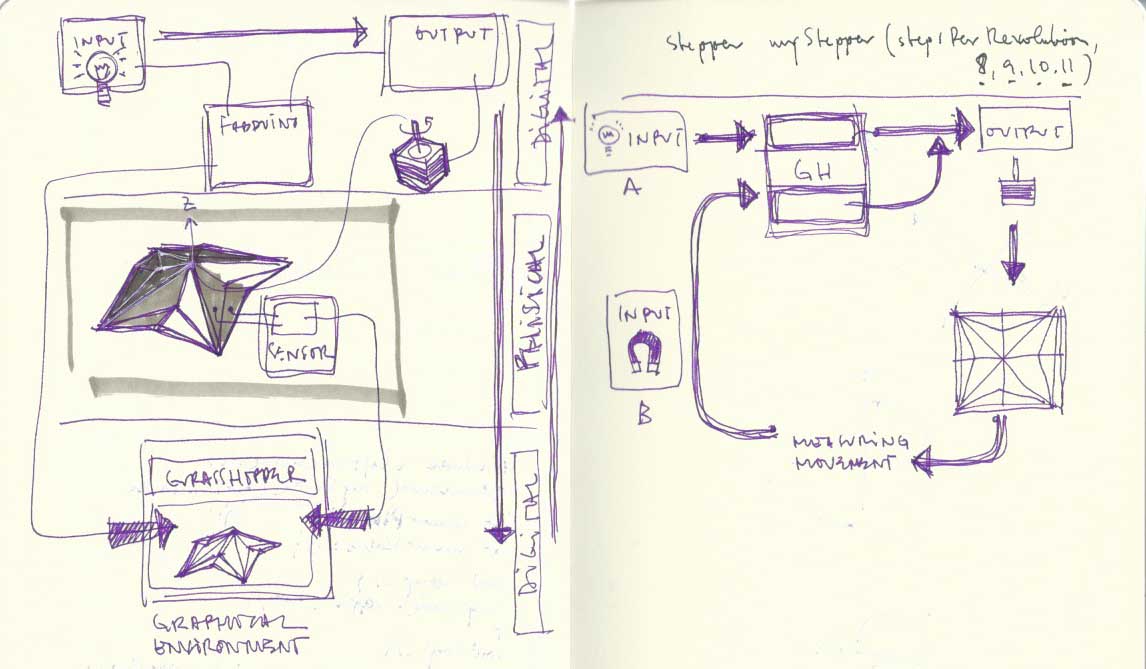 INPUT
OUTPUT
DIGITAL
Z
PHISICAL
SENSOR
GRASSHOPPER
DIGITAL
GRAPHICAL
ENVIRONMENT
Stepper myStepper (stepsPerRevolution,
8, 9, 10, 11)
INPUT
A
GH
OUTPUT
INPUT
B
MEASURING
MOVEMENT